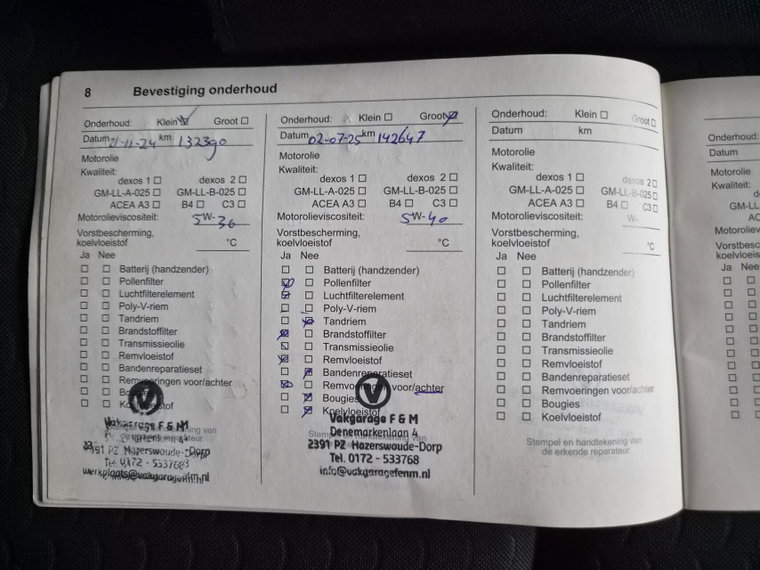 8 Bevestiging onderhoud
Onderhoud: Klein Groot
Datum 21-11-24 km 132390
Motorolie
Kwaliteit:
dexos 1 dexos 2
GM-LL-A-025 GM-LL-B-025
ACEA A3 B4 C3
Motorolieviscositeit: 5W-30
Vorstbescherming,
koelvloeistof °C
Ja Nee
Batterij (handzender)
Pollenfilter
Luchtfilterelement
Poly-V-riem
Tandriem
Brandstoffilter
Transmissieolie
Remvloeistof
Bandenreparatieset
Remvoeringen voor/achter
Koelvloeistof
Vakgarage F & M
2391 PZ Hazerswoude-Dorp
Tel. 0172 - 533768
werkplaats@vakgaragefenm.nl
Onderhoud: Klein Groot
Datum 02-07-25 km 142647
Motorolie
Kwaliteit:
dexos 1 dexos 2
GM-LL-A-025 GM-LL-B-025
ACEA A3 B4 C3
Motorolieviscositeit: 5W-40
Vorstbescherming,
koelvloeistof °C
Ja Nee
Batterij (handzender)
Pollenfilter
Luchtfilterelement
Poly-V-riem
Tandriem
Brandstoffilter
Transmissieolie
Remvloeistof
Bandenreparatieset
Remvoeringen voor/achter
Bougies
Koelvloeistof
Vakgarage F & M
Denemarkenlaan 4
2391 PZ Hazerswoude-Dorp
Tel. 0172 - 533768
info@vakgaragefenm.nl
Onderhoud: Klein Groot
Datum km
Motorolie
Kwaliteit:
dexos 1 dexos 2
GM-LL-A-025 GM-LL-B-025
ACEA A3 B4 C3
Motorolieviscositeit: W-
Vorstbescherming,
koelvloeistof °C
Ja Nee
Batterij (handzender)
Pollenfilter
Luchtfilterelement
Poly-V-riem
Tandriem
Brandstoffilter
Transmissieolie
Remvloeistof
Bandenreparatieset
Remvoeringen voor/achter
Bougies
Koelvloeistof
Stempel en handtekening van
de erkende reparateur
Onderhoud:
Datum
Motorolie
Kwaliteit:
GM-LL
Ja Nee